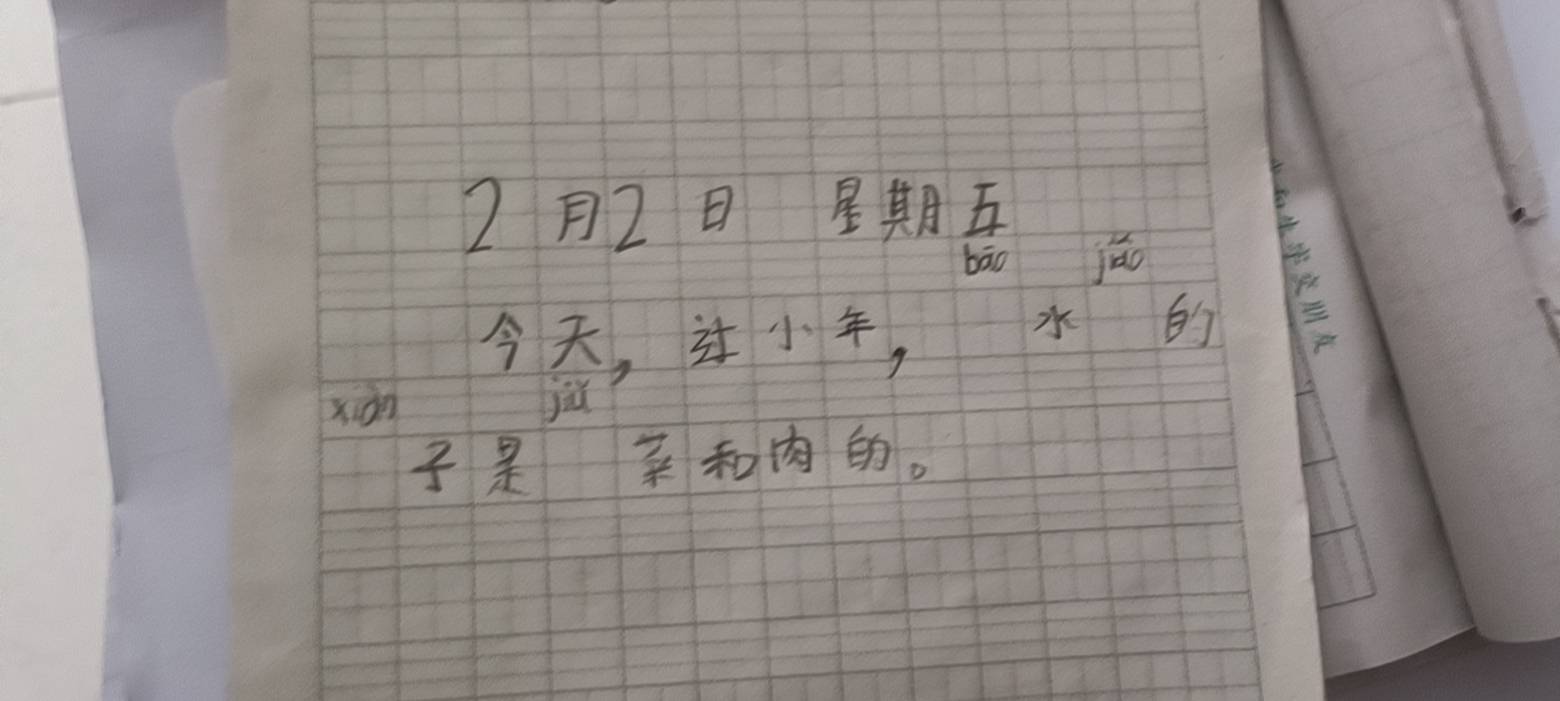 2月2日 星期五
bāo jiǎo
今天，过小年， 水 的
xiàn jiǔ
子是 菜和肉的。